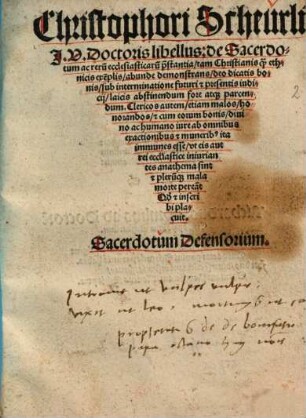 Christophori Scheurli
J. V. Doctoris libellus: de Sacerdo-
tum ac rerū ecclesiasticarū p̄stantia/ tam Christianis q̄ eth-
nicis exēplis/ abunde demonstrans/ deo dicatis bo-
nis/ sub interminatione futuri et presentis iudi-
cij/ laicis abstinendum fore atq; parcen-
dum. Clericos autem/ etiam malos/ ho-
norandos/ et cum eorum bonis/ diui-
no ac humano iure ab omnibus
exactionibus et muneribꝰ ita
immunes esse/ vt eis aut
rei ecclesiastice iniurian
tes anathema sint
et plerūq; mala
morte pereāt
Qd et inscri
bi pla-
cuit.
Sacerdotum Defensorium.
Intrauit ut vulpes
vixit ut leo, mortuus ut ca
prophetatus de bonifatio
papa octauo
2